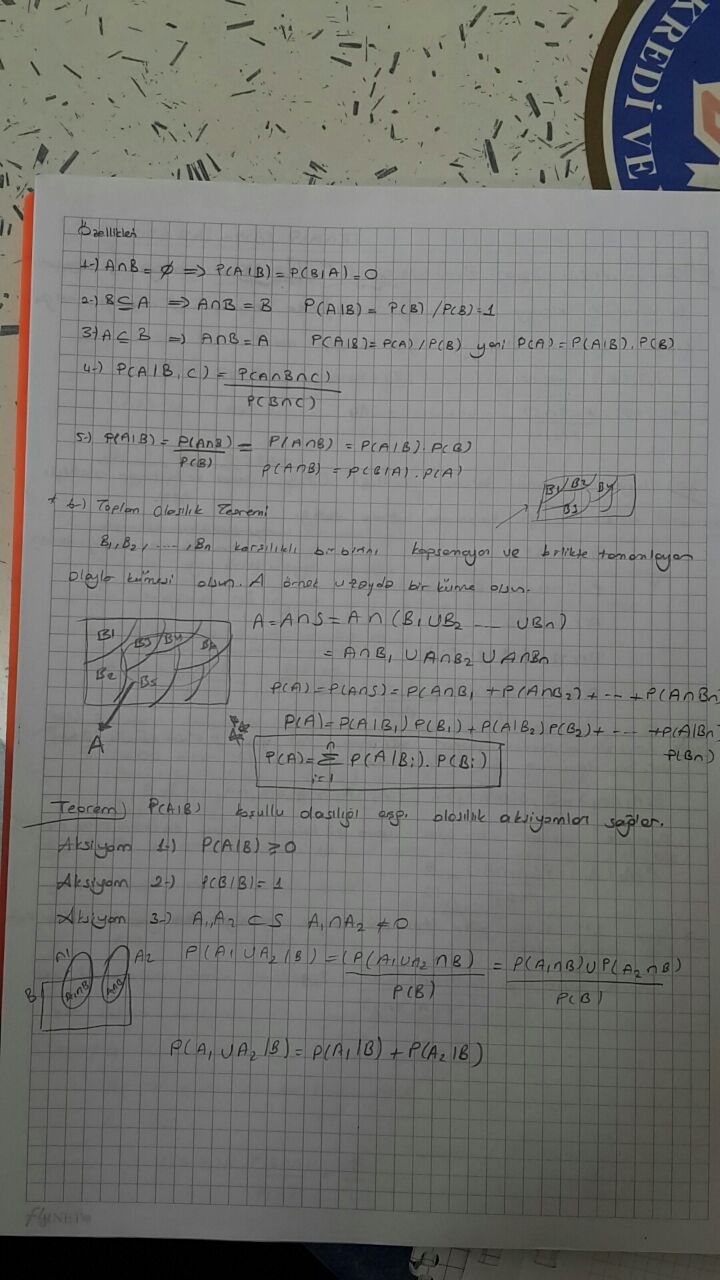 KREDİ VE
Özellikler
1-) A∩B = ∅ => P(A|B) = P(B|A) = 0
2-) B⊆A => A∩B = B P(A|B) = P(B) / P(B) = 1
3-) A⊂B => A∩B = A P(A|B) = P(A) / P(B) yani P(A) = P(A|B) . P(B)
4-) P(A|B,C) = P(A∩B∩C) / P(B∩C)
5-) P(A|B) = P(A∩B) / P(B) = P(A∩B) = P(A|B) . P(B)
P(A∩B) = P(B|A) . P(A)
B1 B2 B4
B3
* 6-) Toplam Olasılık Teoremi
B1, B2, ...., Bn karşılıklı birbirini kapsamayan ve birlikte tamamlayan
olaylar kümesi olsun. A örnek uzayda bir küme olsun.
B1 B3 B4 Bn
B2 B5
A
A = A∩S = A∩ (B1 ∪B2 .... ∪Bn)
= A∩B1 ∪ A∩B2 ∪ A∩Bn
P(A) = P(A∩S) = P(A∩B1 + P(A∩B2) + ... + P(A∩Bn)
P(A) = P(A|B1) P(B1) + P(A|B2) P(B2) + ... + P(A|Bn)
P(Bn)
P(A) = n Σ i=1 P(A|Bi) . P(Bi)
Teorem) P(A|B) koşullu olasılığı olasılık aksiyomları sağlar.
Aksiyom 1-) P(A|B) ≥ 0
Aksiyom 2-) P(B|B) = 1
Aksiyom 3-) A1, A2 ⊂ S A1∩A2 ≠ 0
A1 A2
B A1∩B A∩B
P(A1 ∪ A2 | B) = (P(A1∪A2 ∩ B) / P(B) = P(A1∩B) ∪ P(A2∩B) / P(B)
P(A1 ∪ A2 | B) = P(A1|B) + P(A2|B)